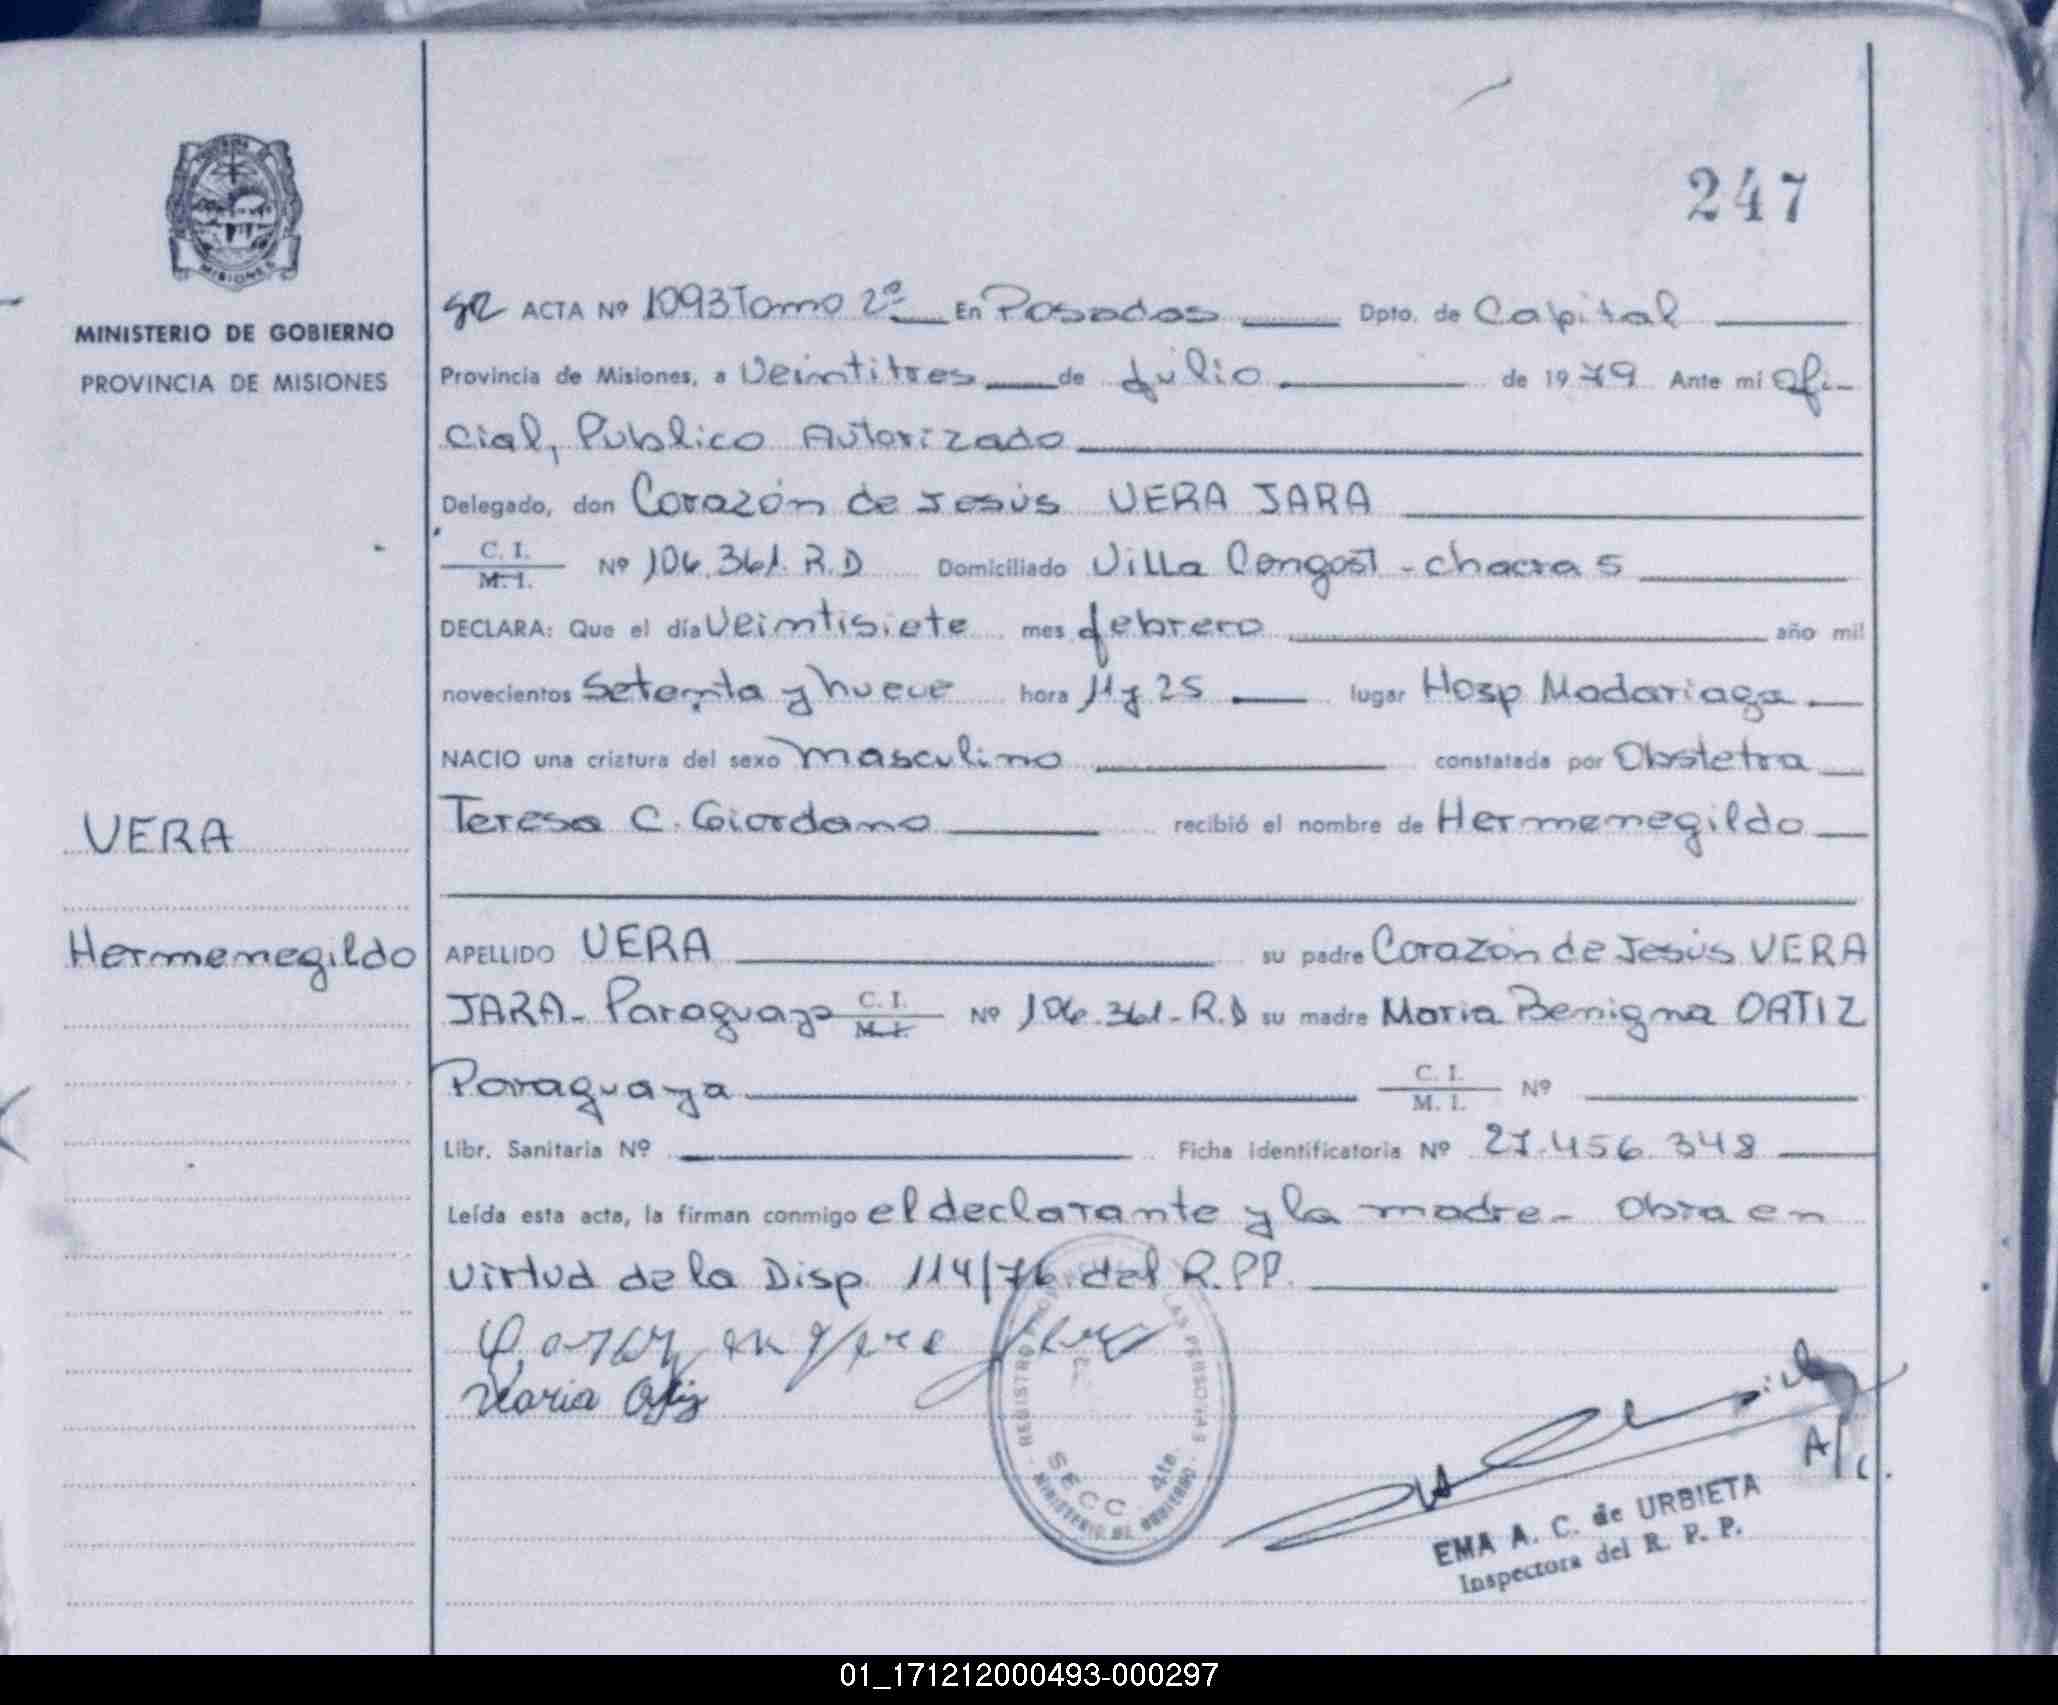 247
MISIONES
MINISTERIO DE GOBIERNO
PROVINCIA DE MISIONES
ACTA Nº 1093 Tomo 2º En Posadas Dpto. de Capital
Provincia de Misiones, a Veintitres de Julio de 1979 Ante mí Ofi-
cial, Publico Autorizado
Delegado, don Corazón de Jesús VERA JARA
C. I. / M. I. Nº 106.361. R.D Domiciliado Villa Congost - chacra 5
DECLARA: Que el día Veintisiete mes febrero año mil
novecientos Setenta y nueve hora 11 y 25 lugar Hosp Madariaga
NACIO una criatura del sexo masculino constatada por Obstetra
Teresa C. Giordano recibió el nombre de Hermenegildo
VERA
Hermenegildo
APELLIDO VERA su padre Corazón de Jesús VERA
JARA - Paraguayo C. I. / M. I. Nº 106.361 - R.D su madre Maria Benigna ORTIZ
Paraguaya C. I. / M. I. Nº
Libr. Sanitaria Nº Ficha Identificatoria Nº 27.456.348
Leída esta acta, la firman conmigo el declarante y la madre - Obra en
virtud de la Disp. 114/76 del R.PP.
Maria Ortiz
REGISTRO LAS PERSONAS
SECC. 4ta.
MINISTERIO DE GOBIERNO
A/c.
EMA A. C. de URBIETA
Inspectora del R. P. P.
01_171212000493-000297